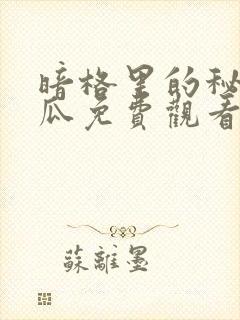 暗格里的秘
瓜免費觀看
蘇離墨